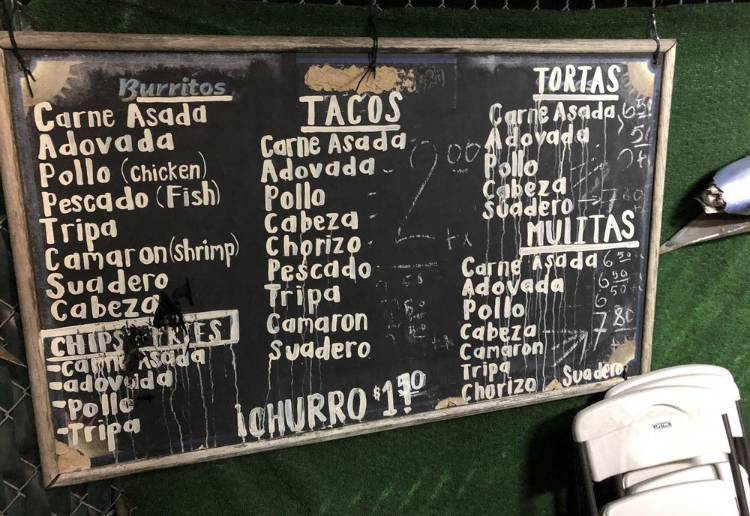 Burritos
Carne Asada
Adovada
Pollo (chicken)
Pescado (Fish)
Tripa
Camaron (shrimp)
Suadero
Cabeza
CHIPS FRIES
-Carne Asada
-adovada
-Pollo
-Tripa
TACOS
Carne Asada
Adovada
Pollo
Cabeza
Chorizo
Pescado
Tripa
Camaron
Suadero
2.00
+x
¡CHURRO $1.50
TORTAS
Carne Asada 6.50
Adovada
Pollo
Cabeza
Suadero
MULITAS
Carne Asada 6.50
Adovada 6.50
Pollo
Cabeza 7.80
Camaron
Tripa
Chorizo Suadero